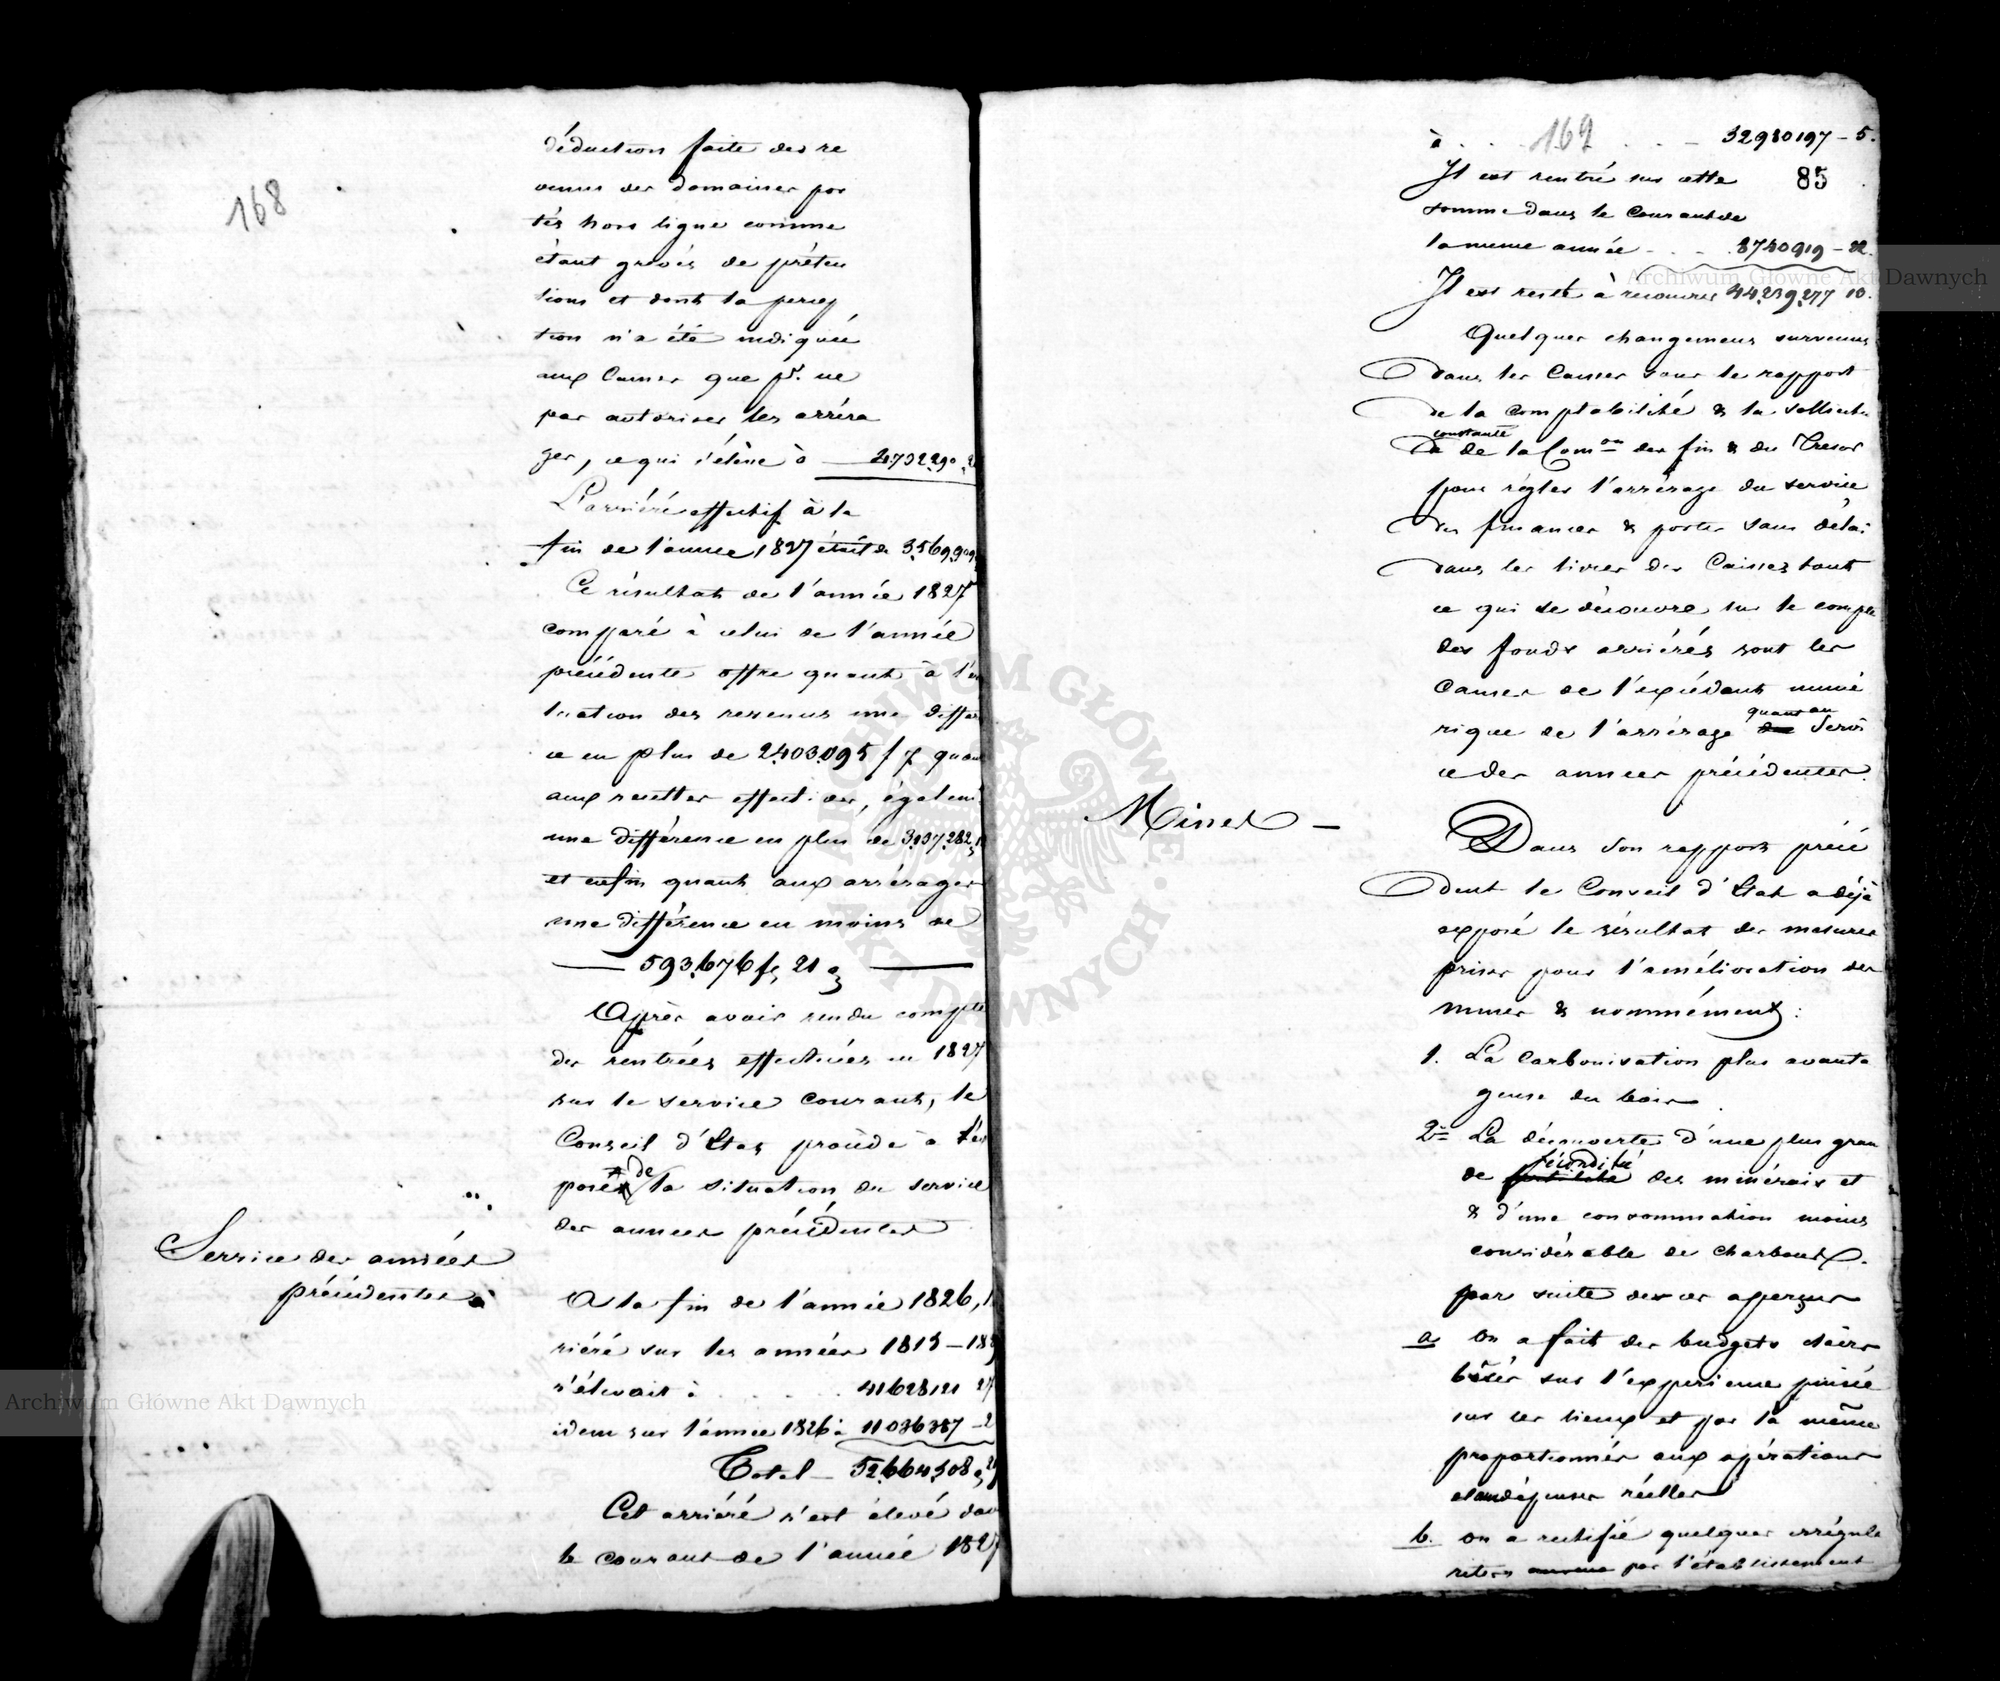 168
déduction faite des re
venus des domaines por
tés hors ligne comme
étant grevés de préten
tions et dont la percep
tion n'a été indiquée
aux Caisses que pr. ne
pas autoriser les arréra
ges, ce qui s'élève à 2732290
L'arriéré effectif à la
fin de l'année 1827 était de 3569909
Ce résultat de l'année 1827
comparé à celui de l'année
précédente offre quant à l'
luation des revenus une diffé
ce en plus de 2.403.095 f 7 quant
aux recettes effectives, égalem
une différence en plus de 3.137.282
et enfin quant aux arrérages
une différence en moins de
— 593.676 f, 21 g —
Après avoir rendu compte
des rentrées effectuées en 1827
sur le service courant, le
Conseil d'Etat procède à l'ex
posé de la situation du service
des années précédentes
Service des années
précédentes
A la fin de l'année 1826, l
riéré sur les années 1815 – 18
s'élevait à . . . . 41628121 27
idem sur l'année 1826 à 11036387 – 2
Total – 52.664.508,
Cet arriéré s'est élevé dans
le courant de l'année 1827
169
à . . . . – 32980197 – 5.
85
Il est rentré sur cette
somme dans le courant de
la meme année – . . 8740919 – 22.
Il est resté à recouvrer 44.239.277 10.
Quelques changemens survenus
dans les Caisses sous le rapport
de la comptabilité & la sollicitu
constante
de de la Comon des fin & du Tresor
pour régler l'arrérage du service
des finances & porter sans délai
dans les livres des Caisses tout
ce qui se découvre sur le compte
des fonds arriérés sont les
causes de l'excédant numé
rique de l'arrérage quant au Servi
ce des années précédentes.
Mines –
Dans son rapport précé
dent le Conseil d'Etat a déjà
exposé le résultat des mesures
prises pour l'amélioration des
mines & nommément :
1. La carbonisation plus avanta
geuse du bois
2º La découverte d'une plus gran
fécondité
de fertilité des minérais et
& d'une consommation moins
considérable de charbons.
par suite de ces apperçus
a on a fait des budgets clairs
basés sur l'expérience puisée
sur les lieux et par là même
proportionnés aux opérations
et aux dépenses réelles
b. on a rectifié quelques irrégula
rités par l'établissement
Archiwum Główne Akt Dawnych
Archiwum Główne Akt Dawnych
ARCHIWUM GŁÓWNE AKT DAWNYCH